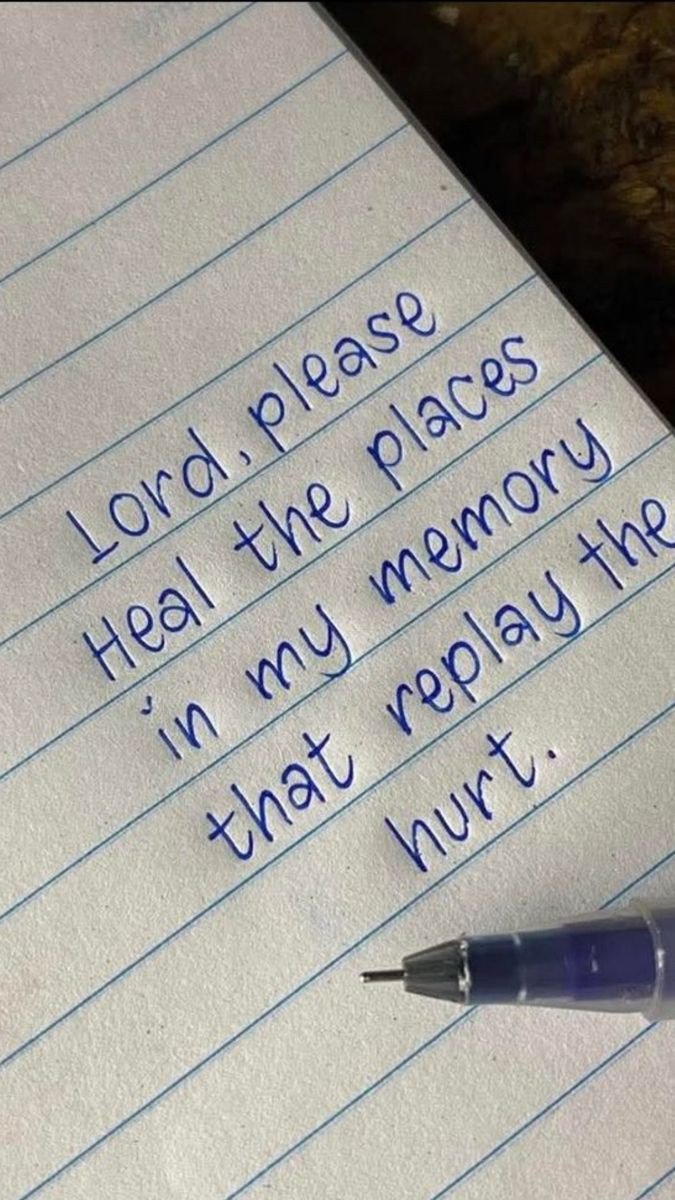 Lord, please
Heal the places
in my memory
that replay the
hurt.